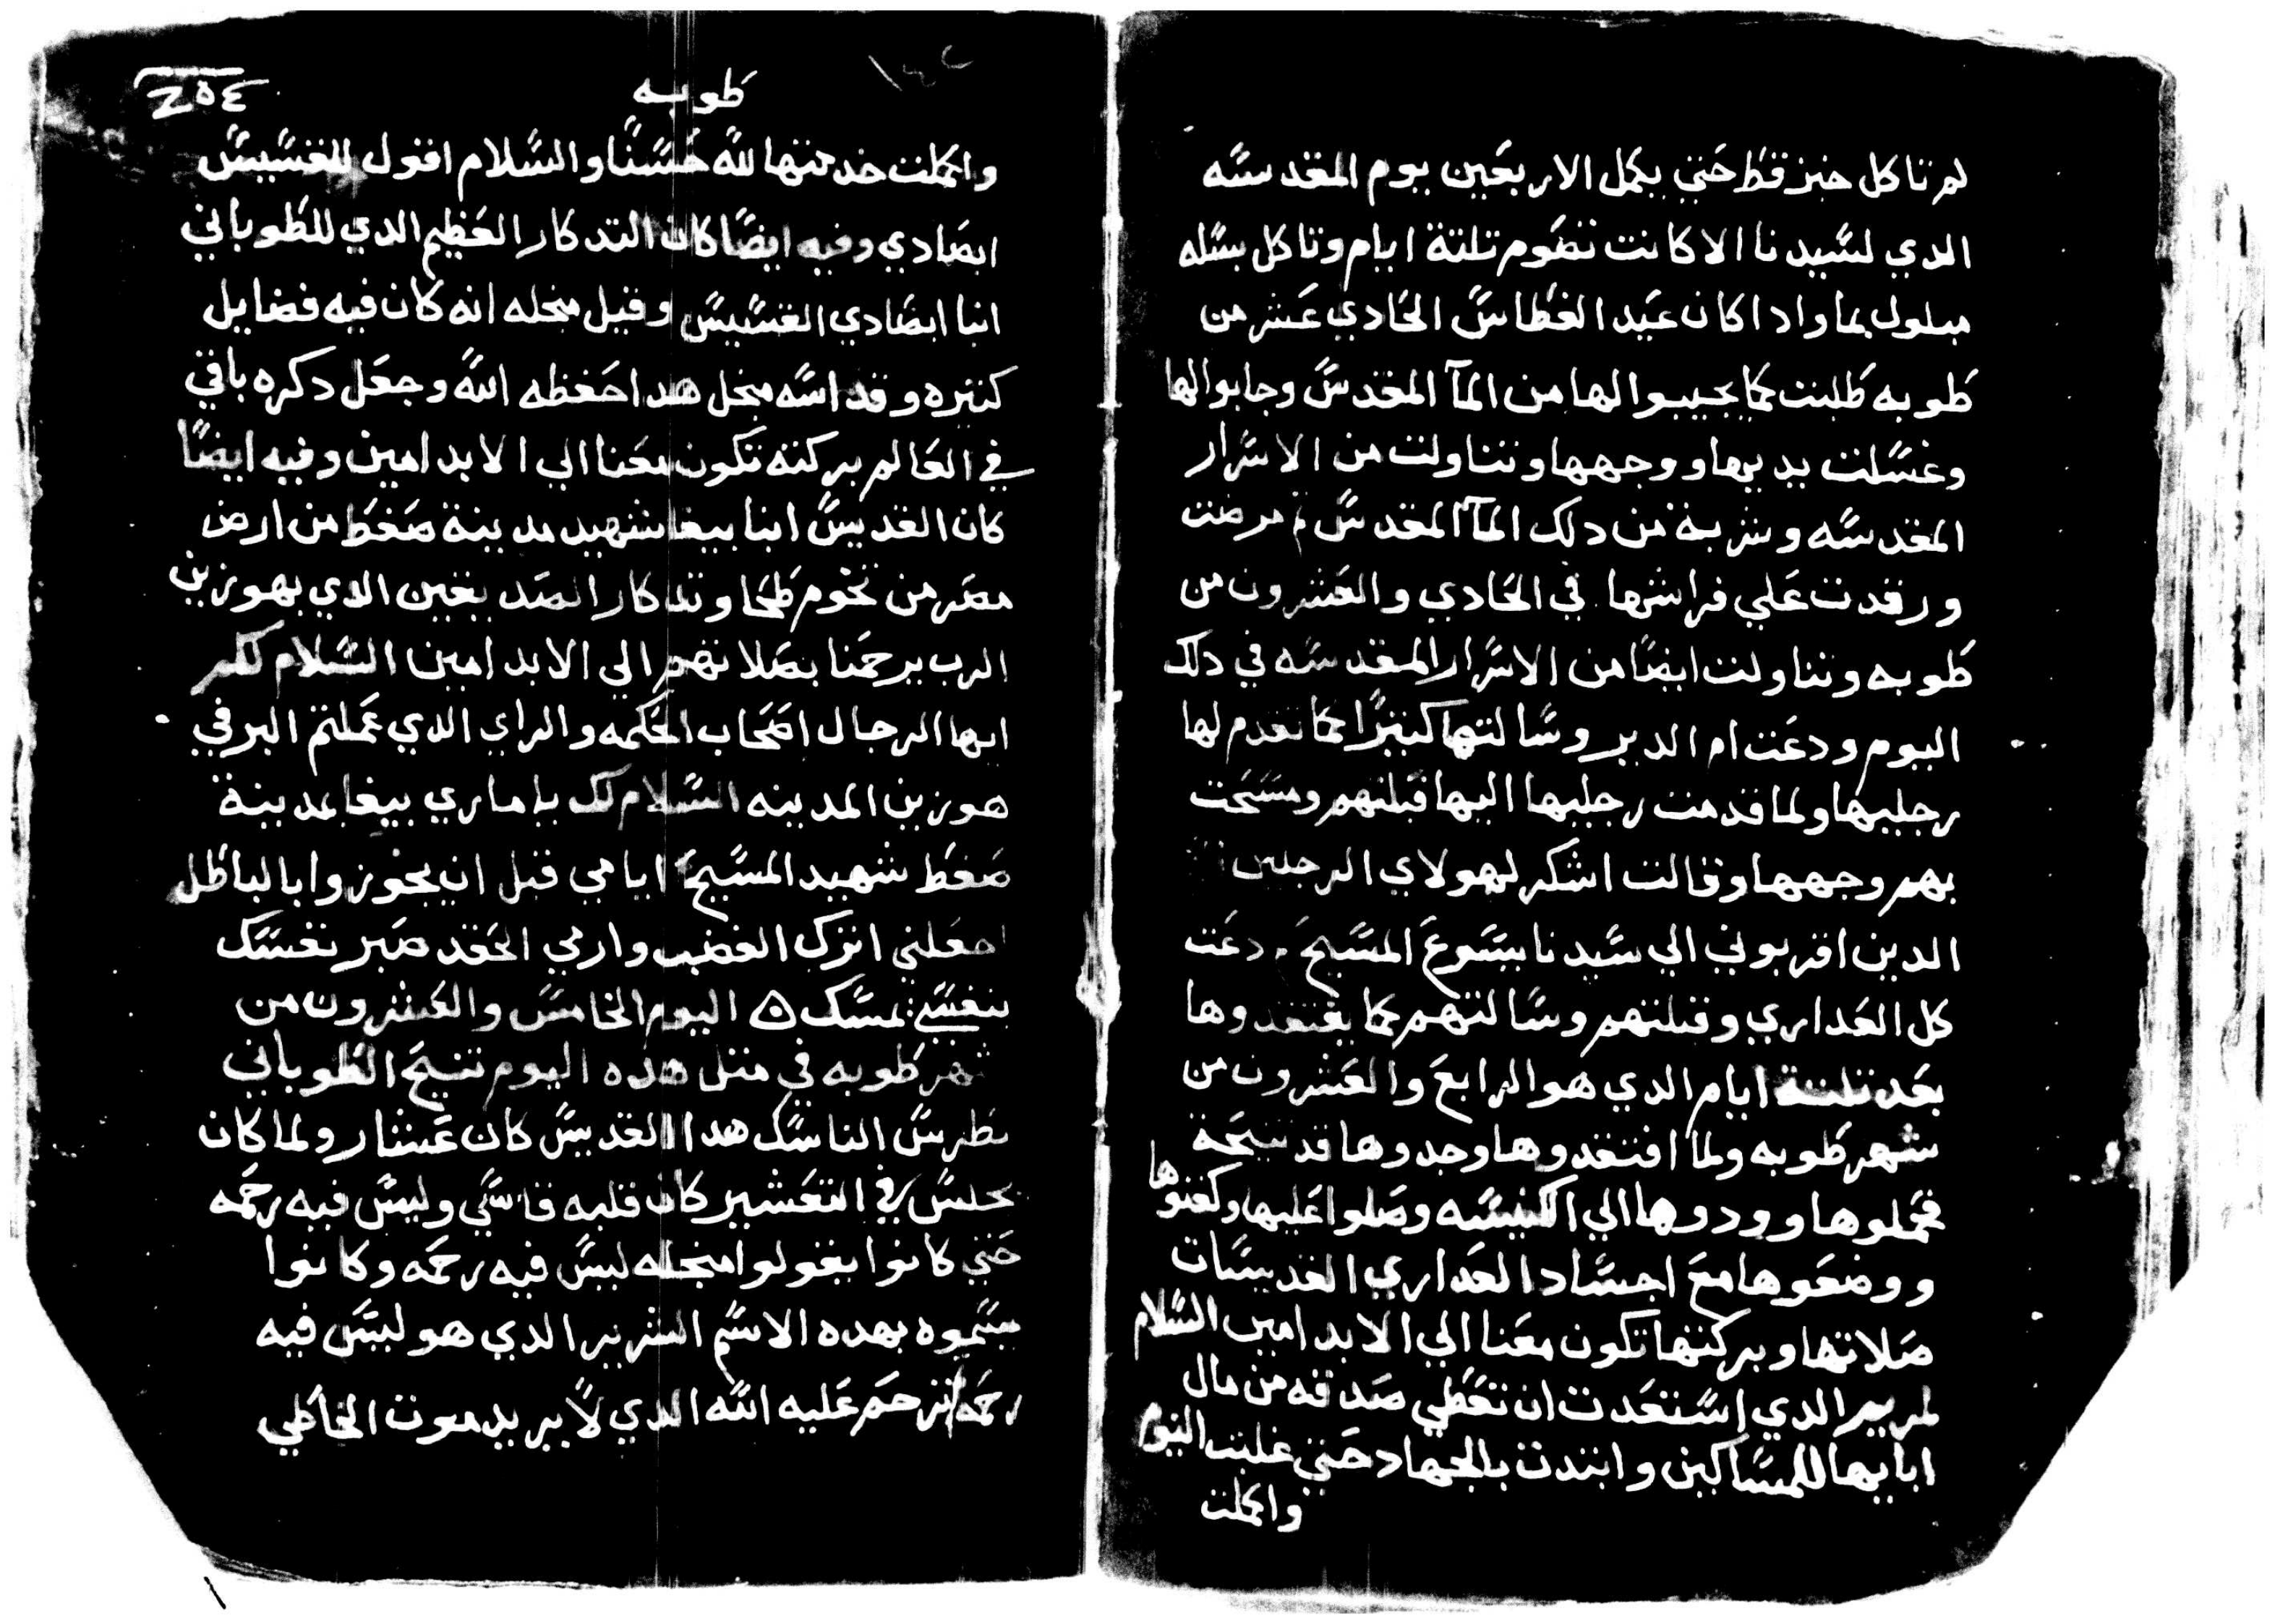 لم تاكل خبز قط حتي يكمل الاربعين يوم المقدسه
الدي لسيدنا الا كانت تصوم تلتة ايام وتاكل بسله
مبلول بما وادا كان عيد الغطاس الحادي عشر من
طوبه طلبت كما يجيبوا لها من المآ المقدس وجابوا لها
وغسلت يديها ووجهها وتناولت من الاسرار
المقدسه وشربة من دلك المآ المقدس تم مرضت
ورقدت علي فراشها في الحادي والعشرون من
طوبه وتناولت ايضًا من الاسرار المقدسه في دلك
اليوم ودعت ام الدير وسالتها كتيرًا كما تقدم لها
رجليها ولما قدمت رجليها اليها قبلتهم ومسحت
بهم وجهها وقالت اشكر لهولاي الرجلين
الدين اقربوني الي سيدنا يسوع المسيح ودعت
كل العداري وقبلتهم وسالتهم كما يفتقدوها
بعد تلتة ايام الدي هو الرابع والعشرون من
شهر طوبه ولما افتقدوها وجدوها قد تنيحة
فحملوها وودوها الي الكنيسه وصلوا عليها وكفنوها
ووضعوها مع اجساد العداري القديسات
صلاتها وبركتها تكون معنا الي الابد امين السلام
لمريم الدي استعدت ان تعطي صدقه من مال
ابايها للمساكين وابتدت بالجهاد حتي غلبت اليوم
واكملت
طوبه
٢٥٤
واكملت خدمتها لله حسنًا والسلام اقول للقسيس
ابصادي وفيه ايضًا كان التدكار العظيم الدي للطوباني
انبا ابصادي القسيس وقيل منجله انه كان فيه فضايل
كتيره وقد اسه منجل هدا حفظه الله وجعل دكره باقي
في العالم بركته تكون معنا الي الابد امين وفيه ايضًا
كان القديس ابنا بيفا شهيد مدينة صفط من ارض
مصر من تخوم طحا وتدكار الصديقين الدي بهوزين
الرب يرحمنا بصلاتهم الي الابد امين السلام لكم
ايها الرجال اصحاب الحكمه والراي الدي عملتم البر في
هوزين المدينه السلام لك يا ماري بيفا بمدينة
صفط شهيد المسيح ايامي قبل ان يجوزوا بالباطل
اجعلني اترك الغضب وارمي الحقد صبر نفسك
بنفسي تمسك ۞ اليوم الخامس والعشرون من
شهر طوبه في متل هده اليوم تنيح الطوباني
بطرس الناسك هدا القديس كان عشار ولما كان
يجلس في التعشير كان قلبه قاسي وليس فيه رحمه
حتي كانوا يقولوا منجله ليس فيه رحمه وكانوا
يسموه بهده الاسم الشرير الدي هو ليس فيه
رحمه ترحم عليه الله الدي لا يريد موت الخاطي